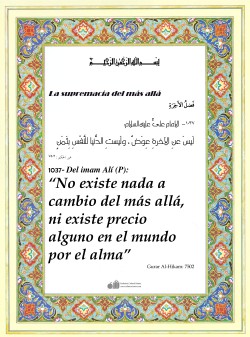 بسم الله الرحمن الرحيم
La supremacía del más allá
فضل الآخرة
١٠٣٧- الإمام علي عليه السلام:
ليس عن الآخرة عوض، وليست الدنيا للنفس بثمن
1037- Del imam Ali (P):
“No existe nada a
cambio del más allá,
ni existe precio
alguno en el mundo
por el alma”
Gurar Al-Hikam: 7502